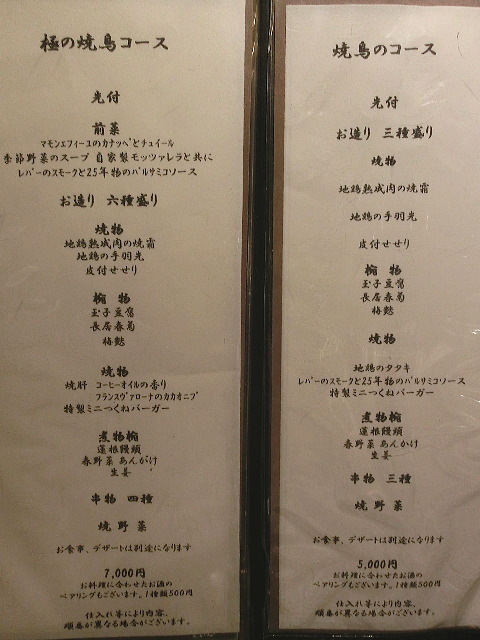 極の焼鳥コース
先付
前菜
マモンエフィーユのカナッペとチュイール
季節野菜のスープ 自家製モッツァレラと共に
レバーのスモークと25年物のバルサミコソース
お造り 六種盛り
焼物
地鶏熟成肉の焼霜
地鶏の手羽先
皮付せせり
椀物
玉子豆腐
長居春菊
梅麩
焼物
焼肝 コーヒーオイルの香り
フランスヴァローナのカカオニブ
特製ミニつくねバーガー
煮物椀
蓮根饅頭
春野菜あんかけ
生姜
串物 四種
焼野菜
お食事、デザートは別途になります
7,000円
お料理に合わせたお酒の
ペアリングもございます。1種類500円
仕入れ等により内容、
順番が異なる場合がございます。
焼鳥のコース
先付
お造り 三種盛り
焼物
地鶏熟成肉の焼霜
地鶏の手羽先
皮付せせり
椀物
玉子豆腐
長居春菊
梅麩
焼物
地鶏のタタキ
レバーのスモークと25年物のバルサミコソース
特製ミニつくねバーガー
煮物椀
蓮根饅頭
春野菜あんかけ
生姜
串物 三種
焼野菜
お食事、デザートは別途になります
5,000円
お料理に合わせたお酒の
ペアリングもございます。1種類500円
仕入れ等により内容、
順番が異なる場合がございます。